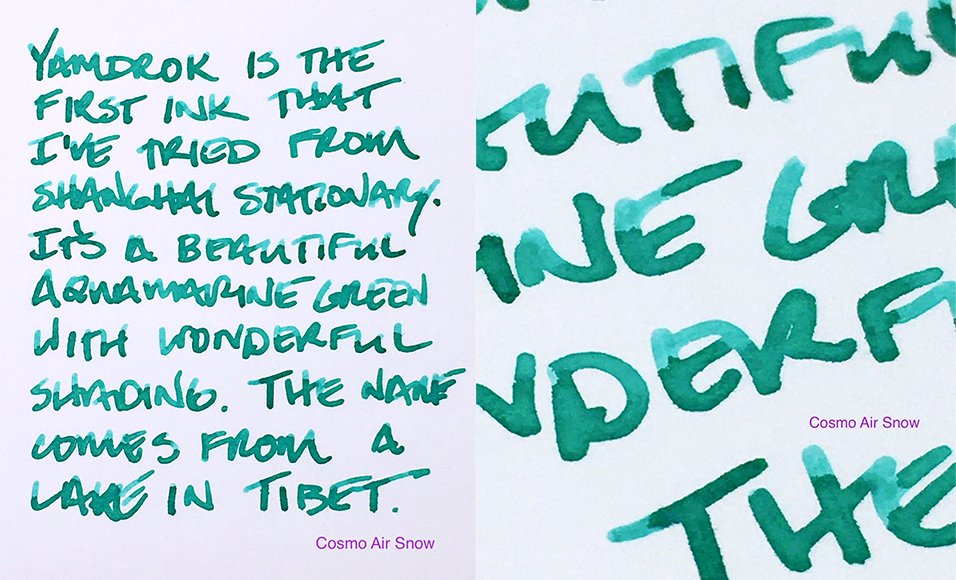 YAMDROK IS THE
FIRST INK THAT
I'VE TRIED FROM
SHANGHAI STATIONARY.
IT'S A BEAUTIFUL
AQUAMARINE GREEN
WITH WONDERFUL
SHADING. THE NAME
COMES FROM A
LAKE IN TIBET.
Cosmo Air Snow
AUTIFUL
INE GRE
NDERF
THE
Cosmo Air Snow